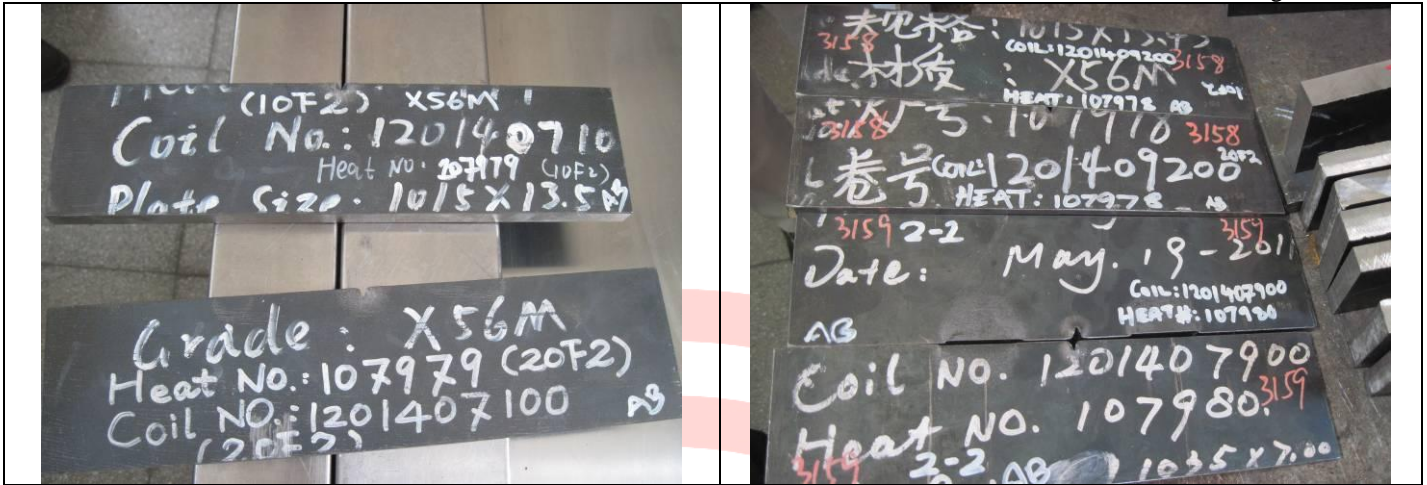 (10F2) X56M
Coil No.: 120140710
Heat No: 207979 (10F2)
Plate Size. 1015X13.5 AB
Grade: X56M
Heat NO.: 107979 (20F2)
Coil NO.: 1201407100 AB
(20F2)
规格: 1015X13.45
3158 COIL:1201409200 3158
材质: X56M
HEAT: 107978 AB
3158 号. 107978 3158
卷号 COIL: 1201409200 20F2
HEAT: 107978 AB
3159 2-2 3159
Date: May. 19-2011
COIL:1201407900
HEAT#:107980
AB
Coil NO. 1201407900
Heat NO. 107980. 3159
3159 2-2 AB 1035X7.00